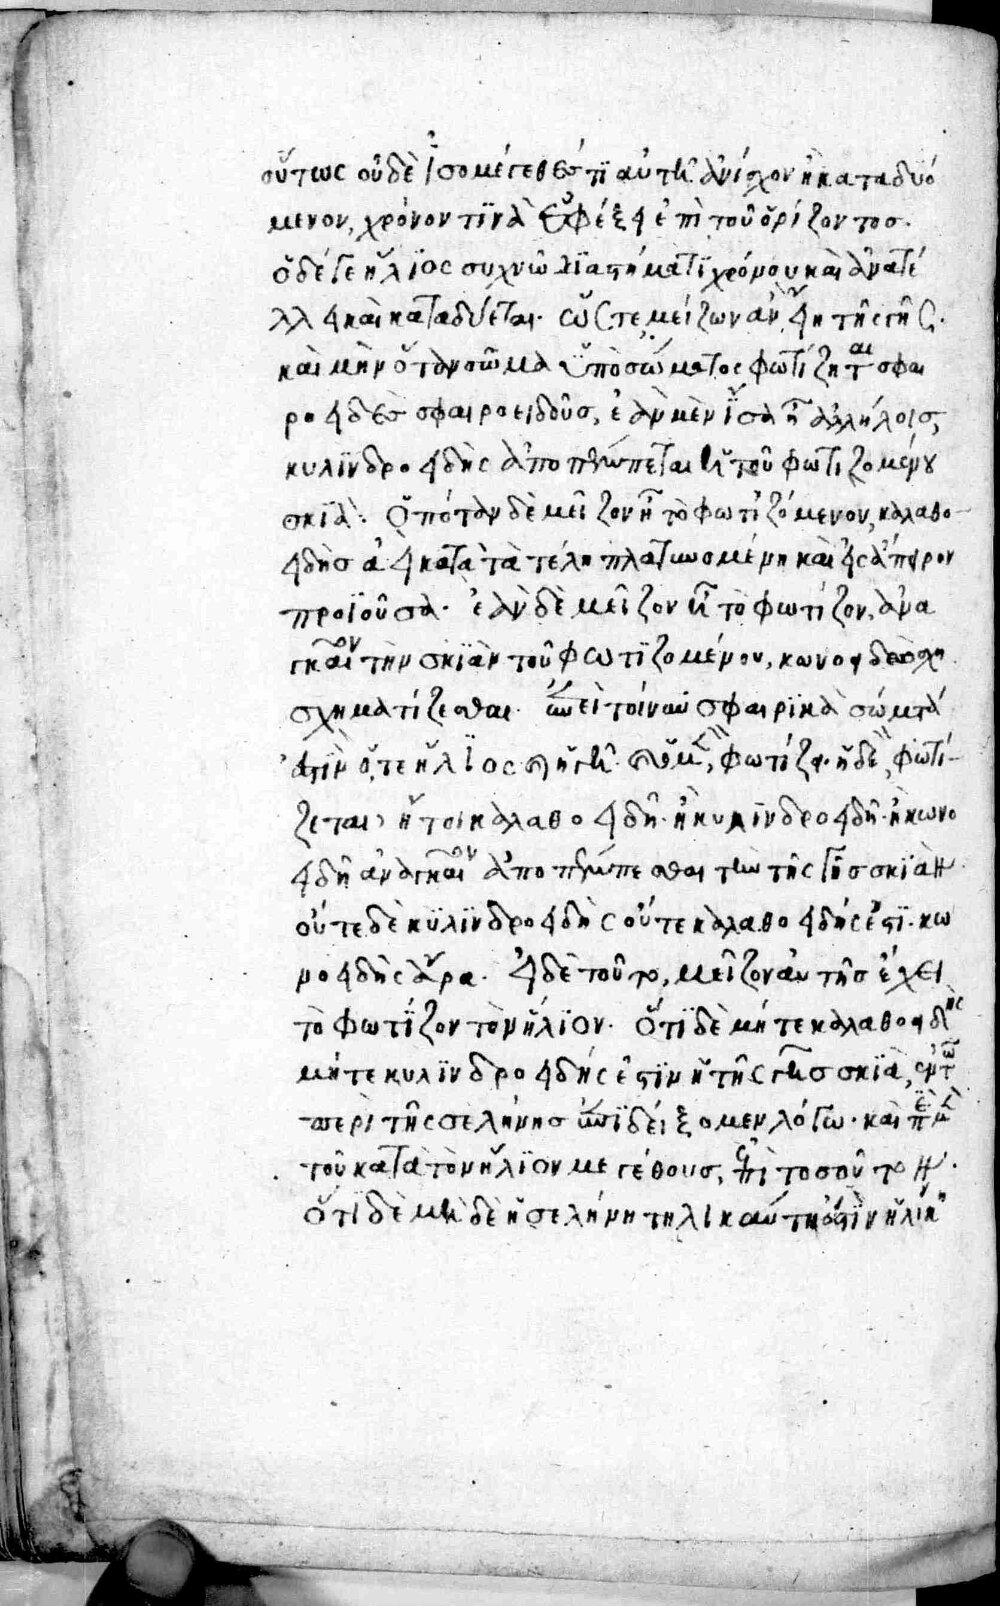 οὕτως οὐδὲ ἰσομέγεθές τι αὐτῆ ἀνίσχον ἢ καταδυό
μενον, χρόνον τινὰ ἐφέξει ἐπὶ τοῦ ὁρίζοντος.
ὁ δέ γε ἥλιος συχνῶ διαστήματι χρόνου καὶ ἀνατέ
λλει καὶ καταδύεται. ὥστε μείζων ἂν εἴη τῆς γῆς.
καὶ μὴν ὅταν σῶμα ὑπὸ σώματος φωτίζηται σφαι
ροειδὲς σφαιροειδοῦς, ἐὰν μὲν ἴσα ἦ ἀλλήλοις,
κυλινδροειδὴς ἀποπέμπεται ἡ τοῦ φωτιζομένου
σκιὰ. ὁπόταν δὲ μεῖζον ἦ τὸ φωτιζόμενον, καλαθο-
ειδὴς ἀεὶ κατὰ τὰ τέλη πλατυνομένη καὶ εἰς ἄπειρον
προϊοῦσα. ἐὰν δὲ μεῖζον ἦ τὸ φωτίζον, ἀνα
γκαῖον τὴν σκιὰν τοῦ φωτιζομένου, κωνοειδῶς
σχηματίζεσθαι. ἐπεὶ τοίνυν σφαιρικὰ σώματά
ἐστιν ὅ, τε ἥλιος φωτίζει. ἡ δὲ φωτί-
ζεται, ἤτοι καλαθοειδῆ. ἢ κυλινδροειδῆ. ἢ κωνο
ειδῆ ἀναγκαῖον ἀποπέμπεσθαι τὴν τῆς γῆς σκιὰν.
οὔτε δὲ κυλινδροειδὴς οὔτε καλαθοειδής ἐστι. κω
νοειδὴς ἄρα. εἰ δὲ τοῦτο, μεῖζον αὐτῆς ἔχει
τὸ φωτίζον τὸν ἥλιον. ὅτι δὲ μήτε καλαθοειδὴς
μήτε κυλινδροειδής ἐστιν ἡ τῆς γῆς σκιὰ, ἐν τῶ
περὶ τῆς σελήνης ἐπιδείξομεν λόγω. καὶ περὶ μὲν
τοῦ κατὰ τὸν ἥλιον μεγέθους, ἐπὶ τοσοῦτον.
ὅτι δὲ μηδὲ ἡ σελήνη τηλικαύτη ἐστὶν ἡλίκη